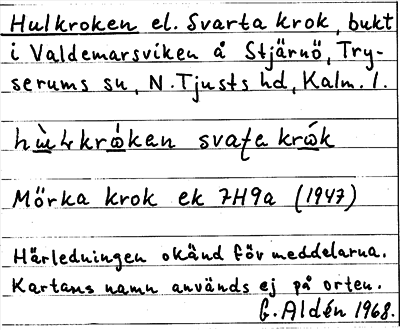 Hulkroken el. Svarta krok, bukt
i Valdemarsviken å Stjärnö, Try-
serums sn, N. Tjusts hd, Kalm. l.
krὼken krὼk
Mörka krok ek 7H9a (1947)
Härledningen okänd för meddelarna.
Kartans namn används ej på orten.
G. Aldén 1968.